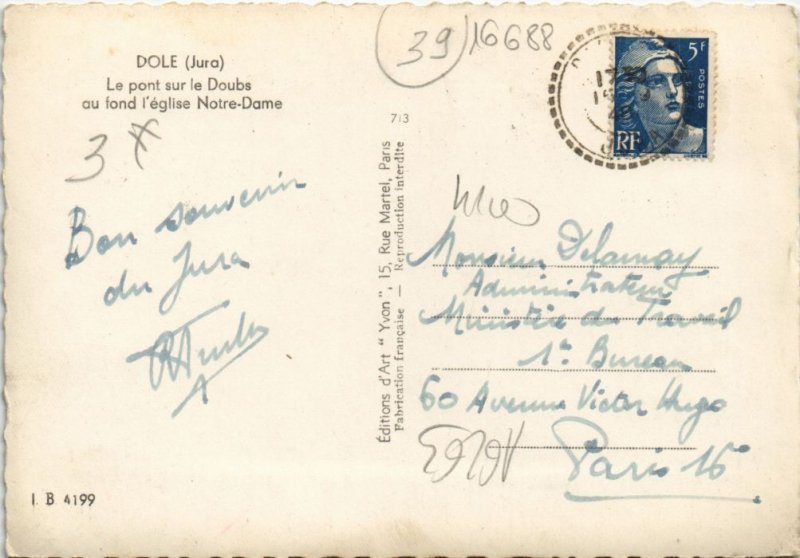 DOLE (Jura)
Le pont sur le Doubs
au fond l'église Notre-Dame
3 *
Bon souvenir
du Jura
I. B 4199
713
Éditions d'Art "Yvon", 15, Rue Martel, Paris
Fabrication française — Reproduction interdite
39
16688
5F
POSTES
RF
Monsieur Delaunay
Administrateur
Ministère du Travail
1er Bureau
60 Avenue Victor Hugo
Paris 16e